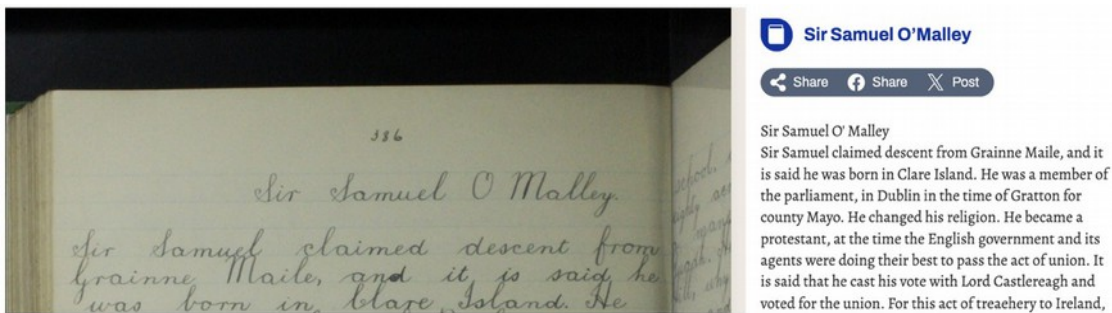 386
Sir Samuel O Malley.
Sir Samuel claimed descent from
Grainne Maile, and it is said he
was born in Clare Island. He
school.
Sir Samuel O’Malley
Share Share Post
Sir Samuel O' Malley
Sir Samuel claimed descent from Grainne Maile, and it
is said he was born in Clare Island. He was a member of
the parliament, in Dublin in the time of Gratton for
county Mayo. He changed his religion. He became a
protestant, at the time the English government and its
agents were doing their best to pass the act of union. It
is said that he cast his vote with Lord Castlereagh and
voted for the union. For this act of treaehery to Ireland,